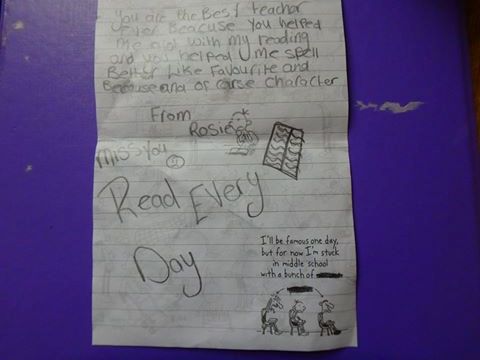 You are the Best teacher
Ever Beacuse You helped
Me alot with my reading
and you helped me spell
Better Like Favourite and
Because and of corse Character
From
Rosie
Miss You
Read Every
Day
I'll be famous one day,
but for now I'm stuck
in middle school
with a bunch of